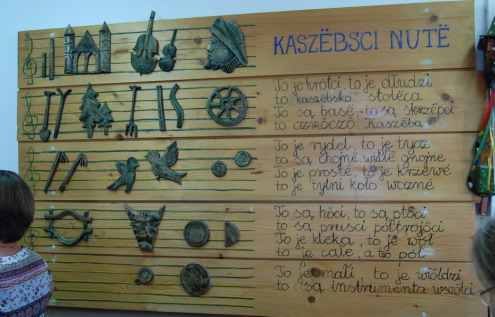 KASZËBSCI NUTË
To je krótci to je dłudzi
to kaszëbskô stolëca
To są basë, to są skrzëpci
to òzôczô Kaszëba
To je rydel, to je tycz
to są chojnë widłë gnojné
To je prosté, to je krzëwé
to je tylni koło wozné
To są hôci, to są ptôci
to są prusci półtrojôci
To je klëka, to je wół
to je całé, a to pół
To je mało, to je wiôldzi
to są instrumenta wszôlci